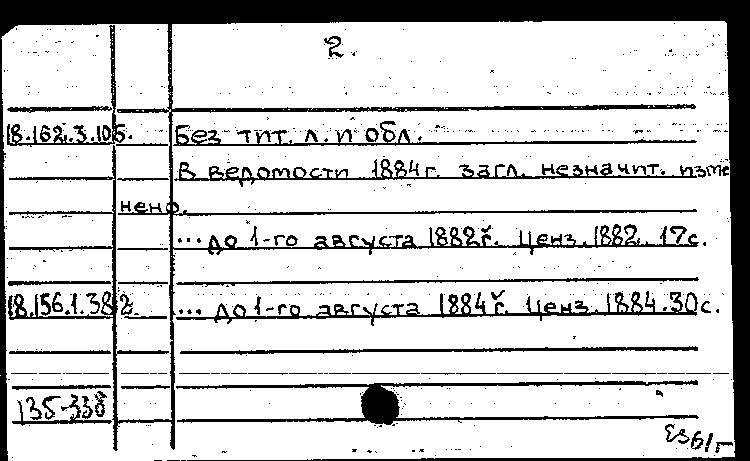 2.
18.162.3.105. Без тит. л. и обл.
В ведомости 1884 г. загл. незначит. изме
нено.
...до 1-го августа 1882 г. Ценз. 1882. 17с.
18.156.1.382. ... до 1-го августа 1884 г. Ценз. 1884. 30с.
135-338